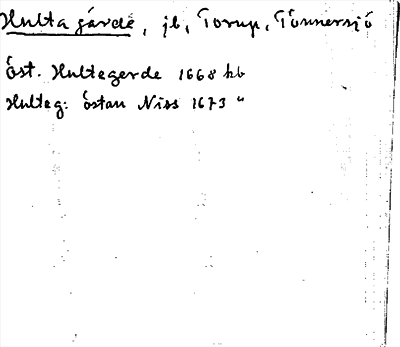 Hulta gärde, jb, Torup, Tönnersjö
Öst. Hultegerde 1668 hb
Hulteg: östan Niss 1673 "